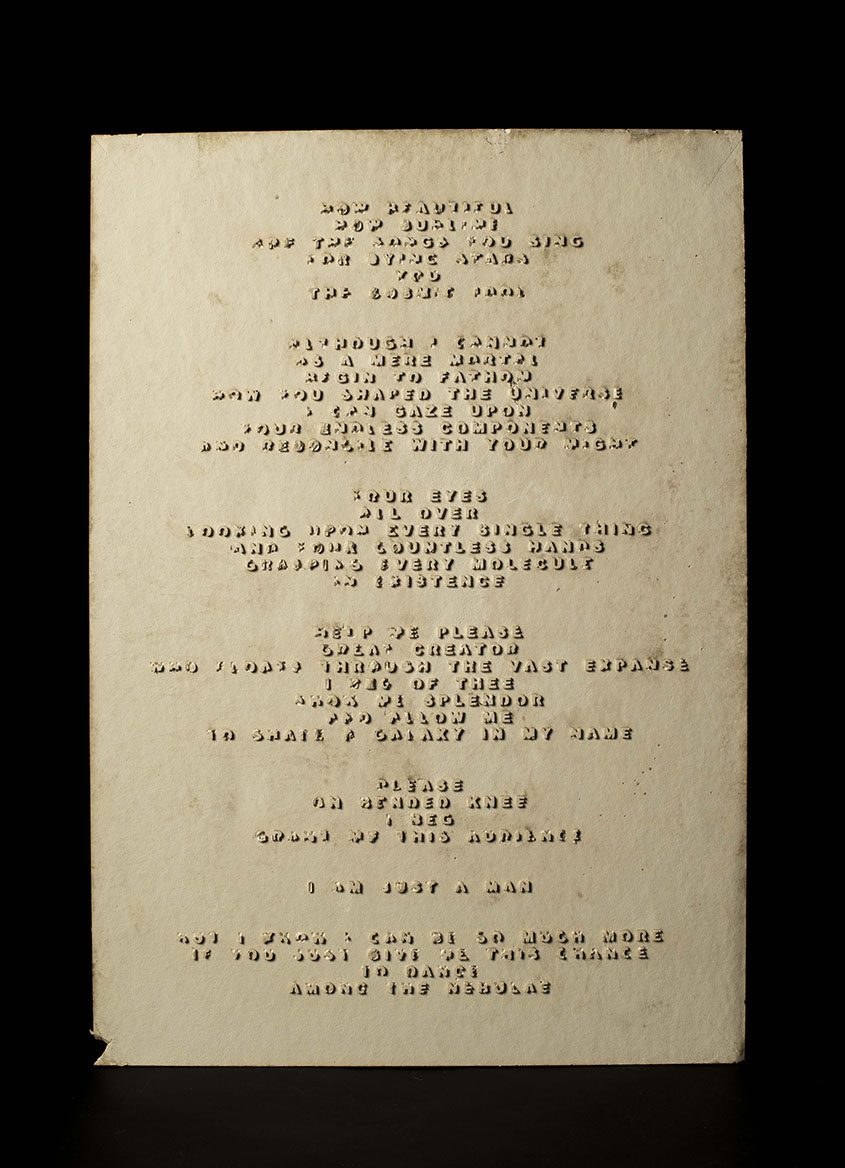 HOW BEAUTIFUL
HOW SUBLIME
ARE THE SONGS YOU SING
FOR DYING STARS
YOU
THE COSMIC IDOL
ALTHOUGH I CANNOT
AS A MERE MORTAL
BEGIN TO FATHOM
HOW YOU SHAPED THE UNIVERSE
I CAN GAZE UPON
YOUR ENDLESS COMPONENTS
AND RECONCILE WITH YOUR MIGHT
YOUR EYES
ALL OVER
LOOKING UPON EVERY SINGLE THING
AND YOUR COUNTLESS HANDS
GRASPING EVERY MOLECULE
IN EXISTENCE
HELP ME PLEASE
GREAT CREATOR
WHO FLOATS THROUGH THE VAST EXPANSE
I BEG OF THEE
SHOW ME SPLENDOR
AND ALLOW ME
TO SHAPE A GALAXY IN MY NAME
PLEASE
ON BENDED KNEE
I BEG
GRANT ME THIS AUDIENCE
I AM JUST A MAN
BUT I KNOW I CAN BE SO MUCH MORE
IF YOU JUST GIVE ME THIS CHANCE
TO DANCE
AMONG THE NEBULAE